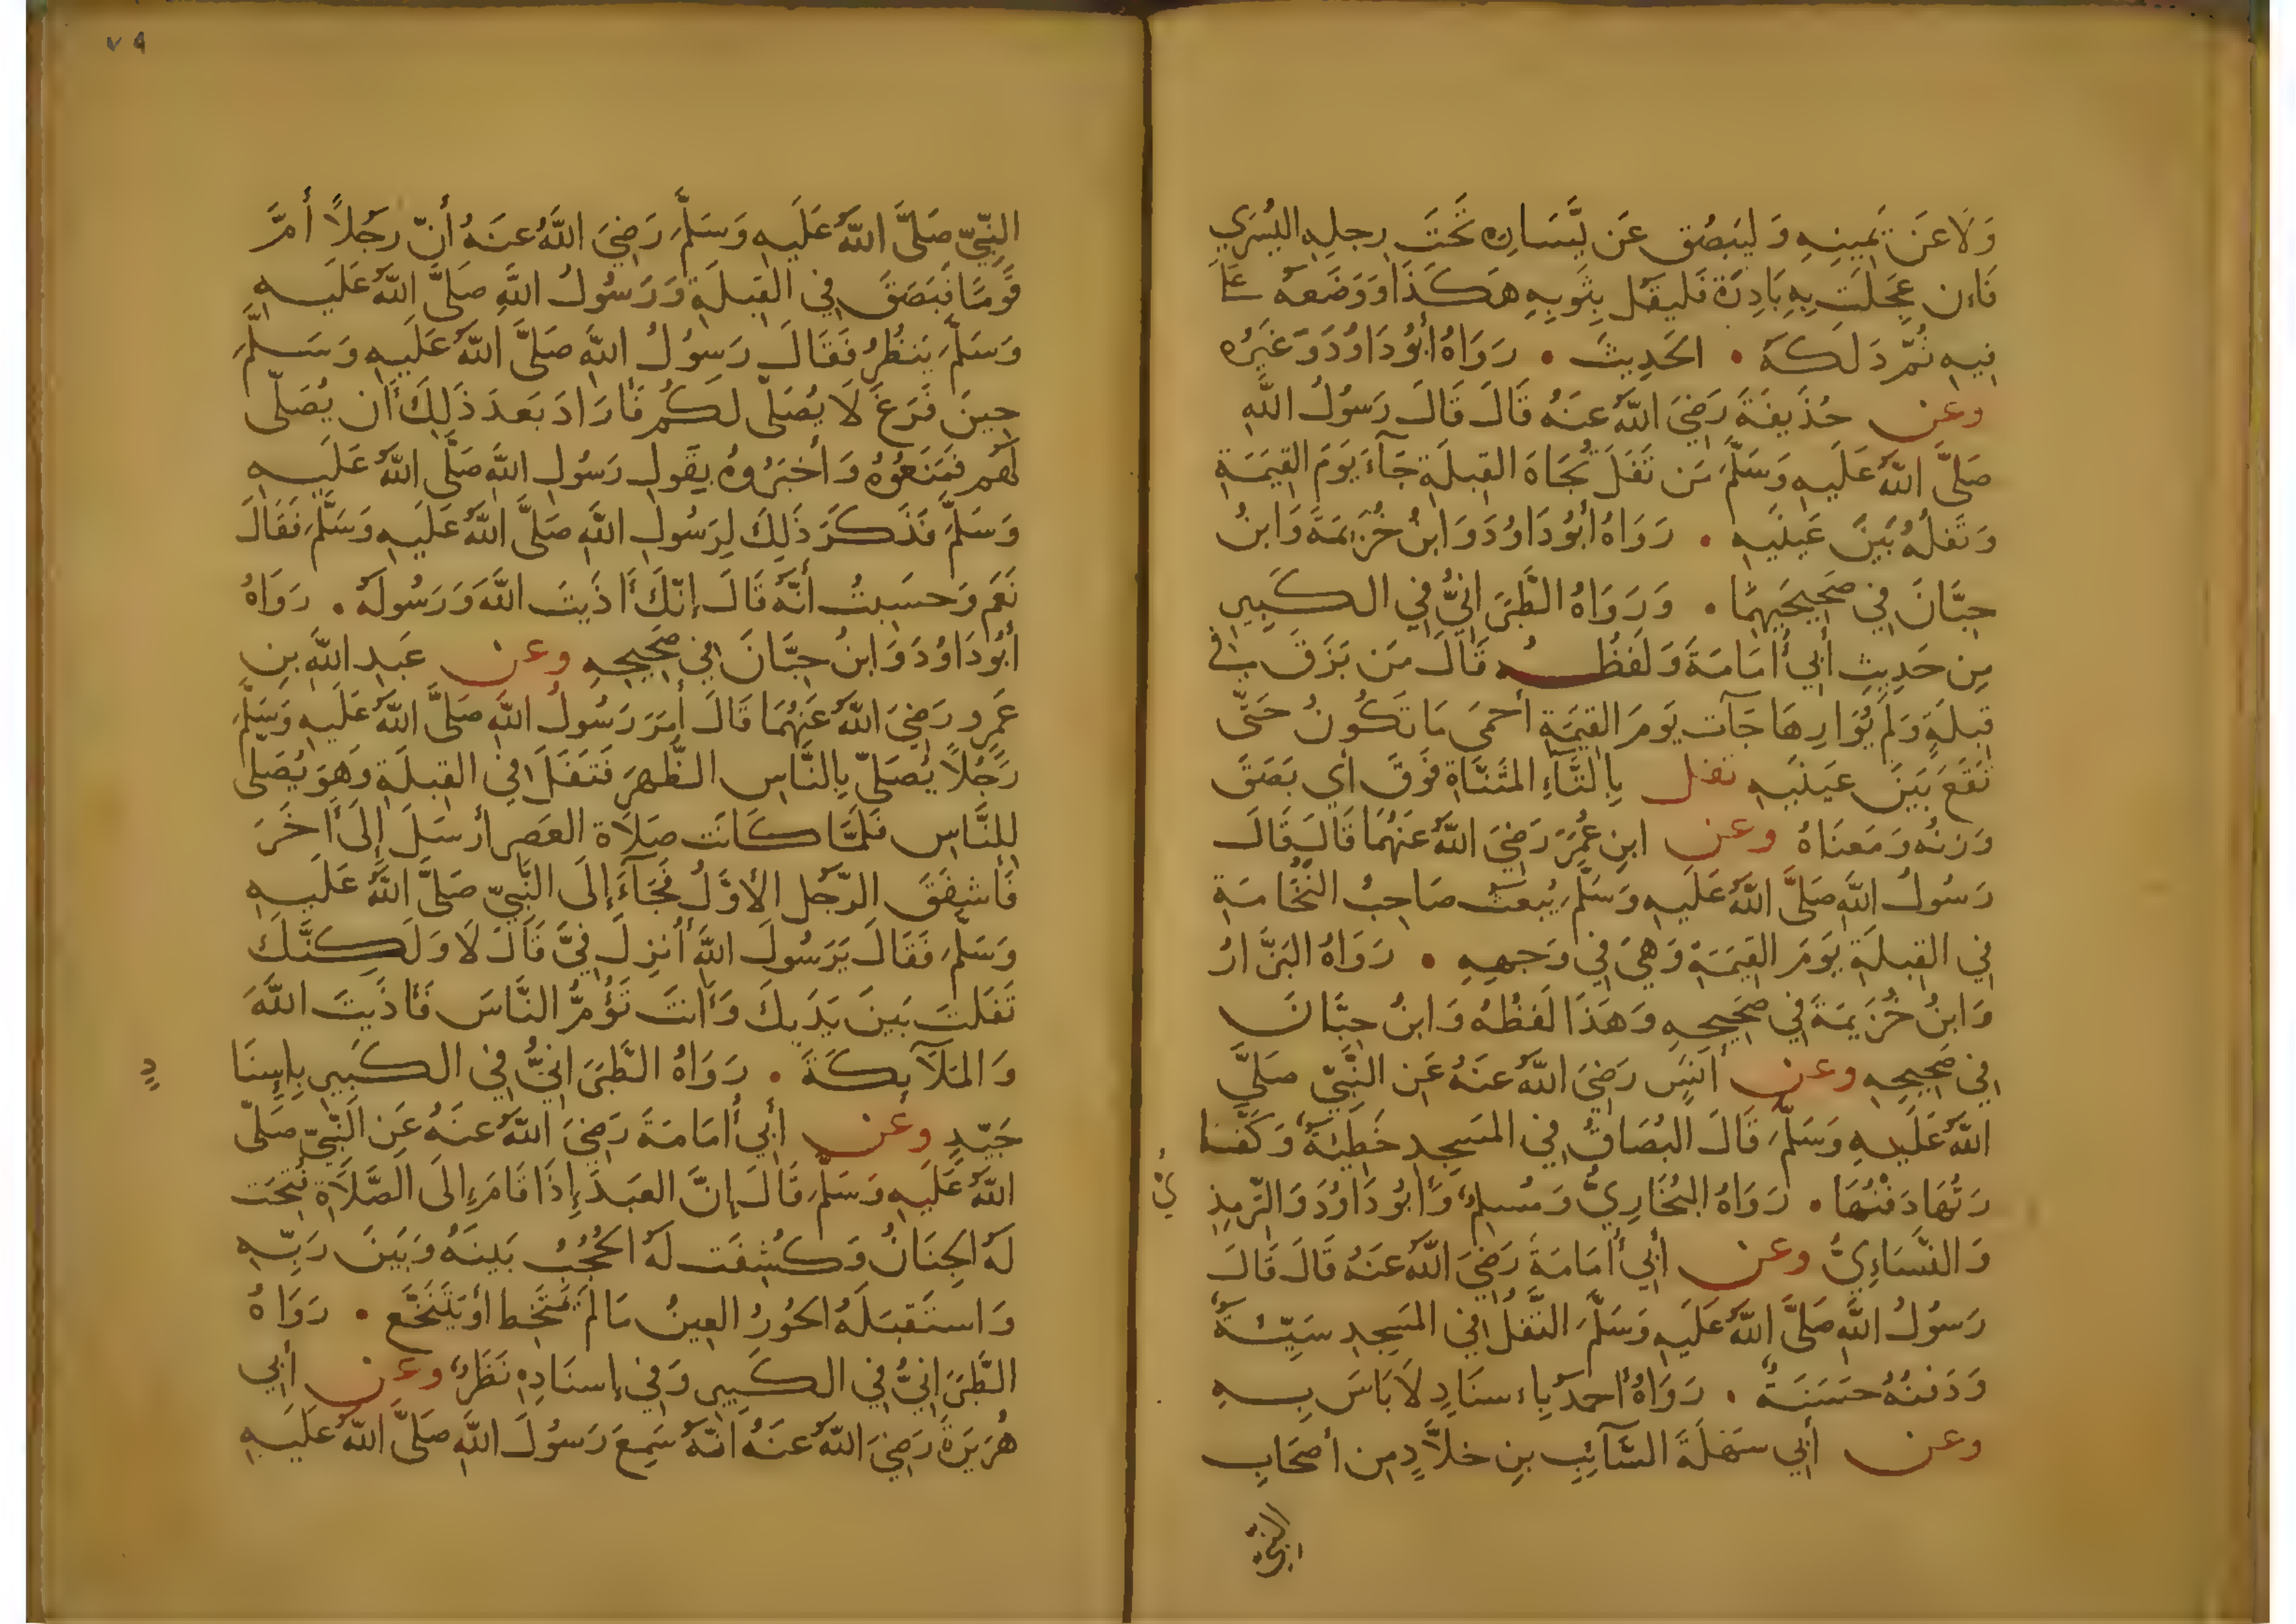 وَلَا عَن يَمِينِهِ وَليَبصُق عَن يَّسَارِهِ تَحتَ رِجلِهِ اليُسرَي
فَاءن عَجِلَت بِهِ بَادِرَة فَليَقُل بِثَوبِهِ هَكَذَا وَوَضَعهُ عَلَي
فِيهِ ثُمَّ دَلَكَهُ • الحَدِيثَ • رَوَاهُ أبُو دَاوُدَ وَغَيرُه
وعن حُذَيفَةَ رَضِيَ اللَّهُ عَنهُ قَالَ قَالَ رَسُولُ اللَّهِ
صَلَّى اللَّهُ عَلَيهِ وَسَلَّمَ مَن تَفَلَ تُجَاهَ القِبلَةِ جَآءَ يَومَ القِيَمَةِ
وَتَفلُهُ بَينَ عَينَيهِ • رَوَاهُ أبُو دَاوُدَ وَابنُ خُزَيمَةَ وَابنُ
حِبَّانَ فِي صَحِيحَيهِمَا • وَرَوَاهُ الطَّبَرَانِيُّ فِي الكَبِيرِ
مِن حَدِيثِ أبِي أُمَامَةَ وَلَفظُه قَالَ مَن بَزَقَ فِي
قِبلَةٍ وَلَم يُوَارِهَا جَآت يَومَ القِيَمَةِ أحمَى مَا تَكُونُ حَتَّى
تَقَعَ بَينَ عَينَيهِ تفل بِالتَّآءِ المثَنَّاةِ فَوقَ أي بَصَقَ
وَزنُه وَمَعنَاهُ وعن ابنِ عُمَرَ رَضِيَ اللَّهُ عَنهُمَا قَالَ قَالَ
رَسُولُ اللَّهِ صَلَّى اللَّهُ عَلَيهِ وَسَلَّمَ يُبعَثُ صَاحِبُ النُّخَامَةِ
فِي القِبلَةِ يَومَ القِيَمَةِ وَهِيَ فِي وَجهِهِ • رَوَاهُ البَزَّارُ
وَابنُ خُزَيمَةَ فِي صَحِيحِهِ وَهَذَا لَفظُهُ وَابنُ حِبَّانَ
فِي صَحِيحِهِ وعن أنَسٍ رَضِيَ اللَّهُ عَنهُ عَنِ النَّبِيِّ صَلَّي
اللَّهُ عَلَيهِ وَسَلَّمَ قَالَ البُصَاقُ فِي المَسجِدِ خَطِيئَةٌ وَكَفَّا
رَتُهَا دَفنُهَا • رَوَاهُ البُخَارِيُّ وَمُسلِمٌ وَأبُو دَاوُدَ وَالتِّرمِذِ
يُّ
وَالنَّسَاءِيُّ وعن أبِي أُمَامَةَ رَضِيَ اللَّهُ عَنهُ قَالَ قَالَ
رَسُولُ اللَّهِ صَلَّى اللَّهُ عَلَيهِ وَسَلَّمَ التَّفلُ فِي المَسجِدِ سَيِّئَةٌ
وَدَفنُهُ حَسَنَةٌ • رَوَاهُ أحمَدُ بِاءسنَادٍ لَا بَاسَ بِهِ
وعن أبِي سَهلَةَ السَّآئِبِ بنِ خلَّادٍ مِن أصحَابِ
النَّبِيِّ
٧٩
النَّبِيِّ صَلَّى اللَّهُ عَلَيهِ وَسَلَّمَ رَضِيَ اللَّهُ عَنهُ أنَّ رَجُلًا أمَّ
قَومًا فَبَصَقَ فِي القِبلَةِ وَرَسُولُ اللَّهِ صَلَّى اللَّهُ عَلَيهِ
وَسَلَّمَ يَنظُرُ فَقَالَ رَسُولُ اللَّهِ صَلَّى اللَّهُ عَلَيهِ وَسَلَّمَ
حِينَ فَرَغَ لَا يُصَلّى لَكُم فَأرَادَ بَعدَ ذَلِكَ أن يُصَلّى
لَهُم فَمَنَعُوهُ وَأخبَرُوهُ بِقَولِ رَسُولِ اللَّهِ صَلَّى اللَّهُ عَلَيهِ
وَسَلَّمَ فَذَكَرَ ذَلِكَ لِرَسُولِ اللَّهِ صَلَّى اللَّهُ عَلَيهِ وَسَلَّمَ فَقَالَ
نَعَم وَحَسِبتُ أنَّهُ قَالَ إنَّكَ أَاذَيتَ اللَّهَ وَرَسُولَهُ • رَوَاهُ
أبُو دَاوُدَ وَابنُ حِبَّانَ فِي صَحِيحِهِ وعن عَبدِ اللَّهِ بنِ
عَمرٍو رَضِيَ اللَّهُ عَنهُمَا قَالَ أمَرَ رَسُولُ اللَّهِ صَلَّى اللَّهُ عَلَيهِ وَسَلَّمَ
رَجُلًا يُصَلّي بِالنَّاسِ الظُّهرَ فَتَفَلَ فِي القِبلَةِ وَهوَ يُصَلّى
لِلنَّاسِ فَلَمَّا كَانَت صَلَاة العَصرِ أرسَلَ إلَى أَاخَرَ
فَأشفَقَ الرَّجُل الأوَّلُ فَجَآءَ إلَى النَّبِيّ صَلَّى اللَّهُ عَلَيهِ
وَسَلَّمَ فَقَالَ يَرَسُولَ اللَّهِ أَنزِلَ فِيَّ قَالَ لَا وَلَكِنَّكَ
تَفَلتَ بَينَ يَدَيكَ وَأنتَ تَؤُمُّ النَّاسَ فَأَاذَيتَ اللَّهَ
وَالمَلَآيِكَةَ • رَوَاهُ الطَّبَرَانِيُّ فِي الكَبِيرِ بِإسنَا
دٍ
جَيّدٍ وعن أبِي أُمَامَةَ رَضِيَ اللَّهُ عَنهُ عَنِ النَّبِيّ صَلَّى
اللَّهُ عَلَيهِ وَسَلَّمَ قَالَ إنَّ العَبدَ إذَا قَامَ إلَى الصَّلَاةِ فُتِحَت
لَهُ الجِنَانُ وَكُشِفَت لَهُ الحُجُبُ بَينَهُ وَبَينَ رَبِّهِ
وَاستَقبَلَهُ الحُورُ العِينُ مَالَم يَمتَخِط أو يَتَنَخَّع • رَوَاهُ
الطَّبَرَانِيُّ فِي الكَبِيرِ وَفِي إسنَادِهِ نَظَرٌ وعن أبِي
هُرَيرَةَ رَضِيَ اللَّهُ عَنهُ أنَّهُ سَمِعَ رَسُولَ اللَّهِ صَلَّى اللَّهُ عَلَيهِ